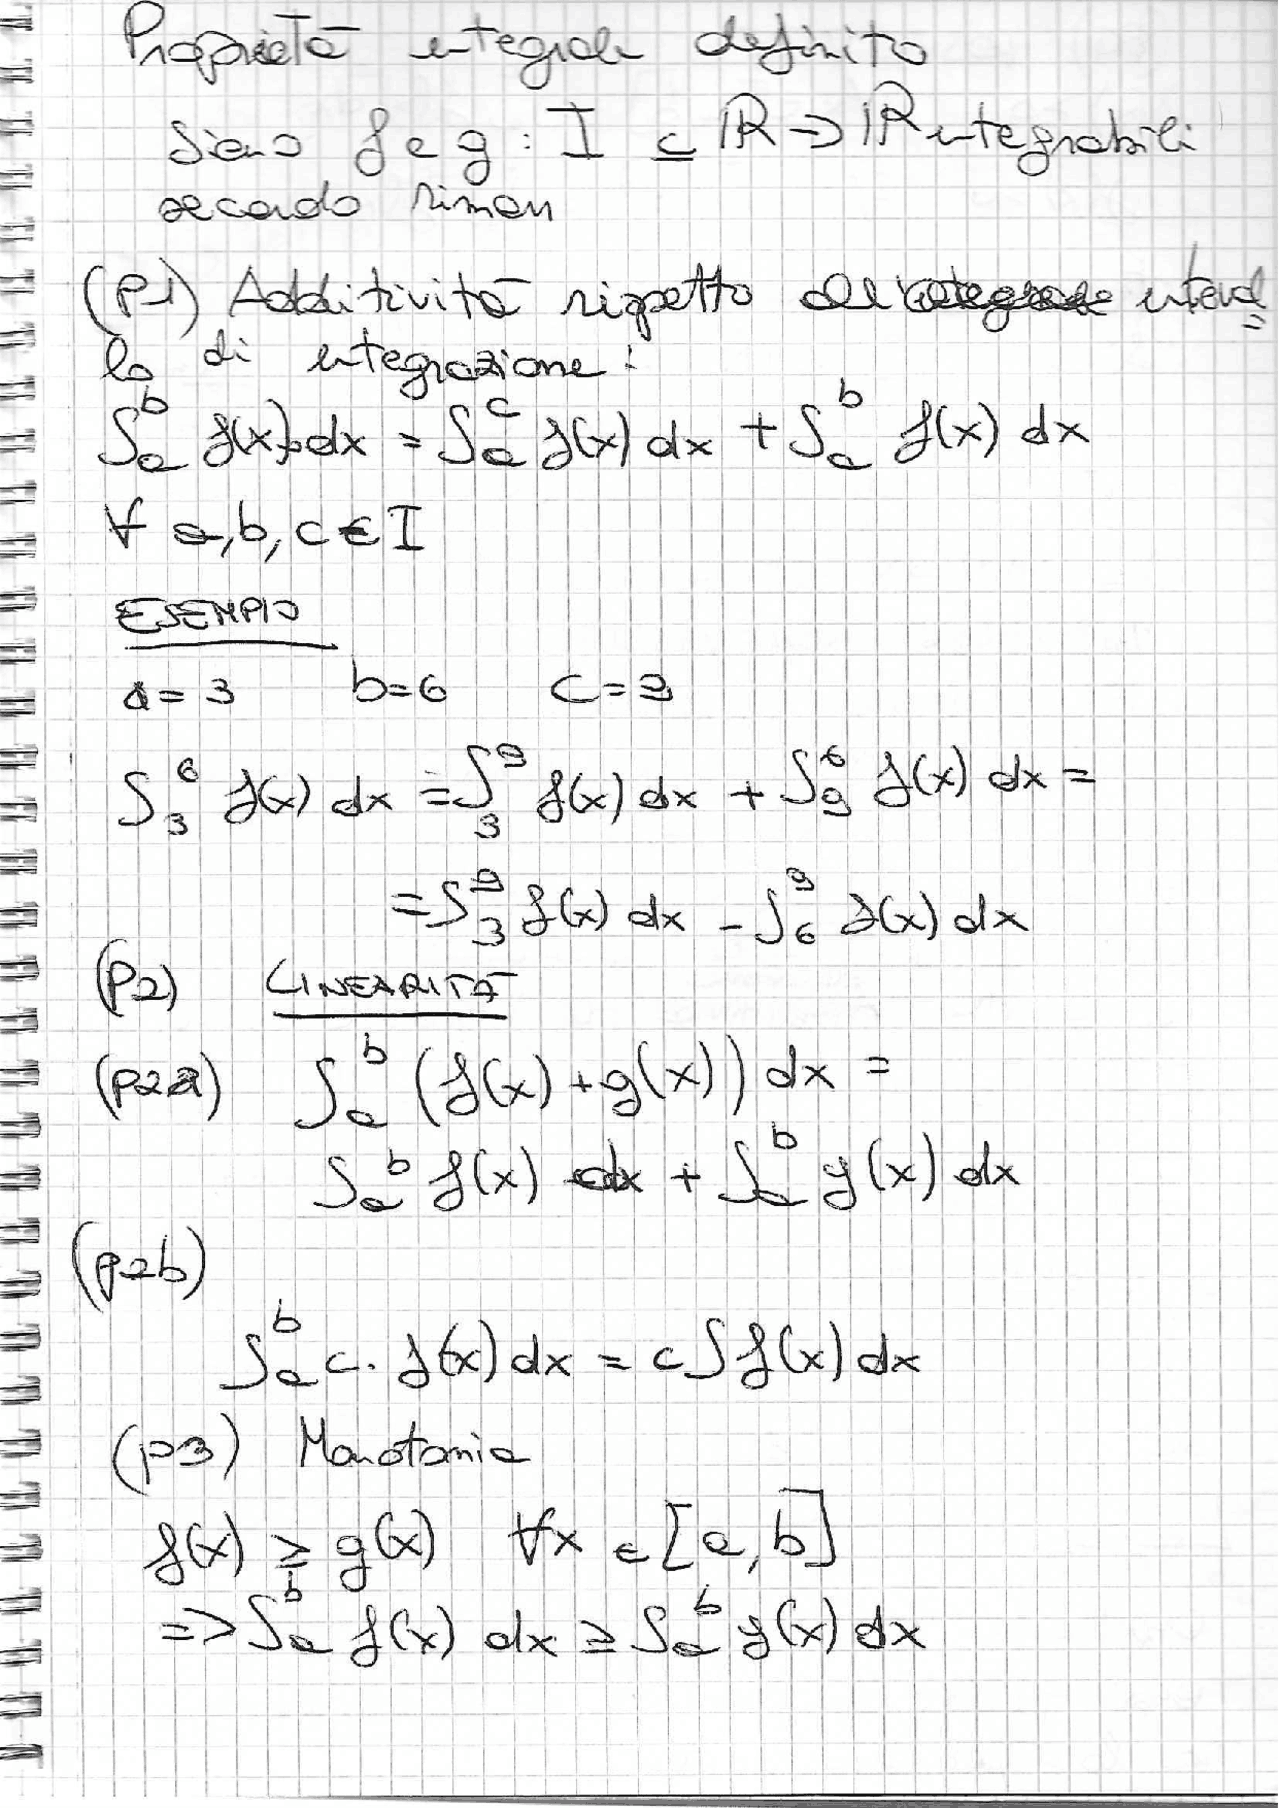 Proprietà integrale definito
Siano f e g : I ⊆ ℝ → ℝ integrabili
secondo Riman
(P1) Additività rispetto all' interval=
lo di integrazione :
∫_a^b f(x) dx = ∫_a^c f(x) dx + ∫_a^b f(x) dx
∀ a, b, c ∈ I
ESEMPIO
a = 3 b = 6 c = 9
∫_3^6 f(x) dx = ∫_3^9 f(x) dx + ∫_9^6 f(x) dx =
= ∫_3^9 f(x) dx - ∫_6^9 f(x) dx
(P2) LINEARITÀ
(P2a) ∫_a^b (f(x) + g(x)) dx =
∫_a^b f(x) dx + ∫_a^b g(x) dx
(p2b)
∫_a^b c · f(x) dx = c ∫ f(x) dx
(p3) Monotonia
f(x) ≥ g(x) ∀x ∈ [a, b]
=> ∫_a^b f(x) dx ≥ ∫_a^b g(x) dx